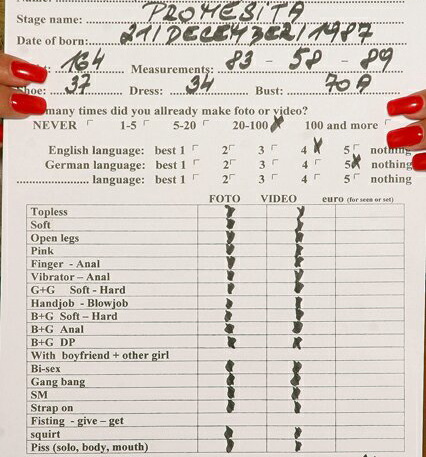 Stage name: PROMESITA
Date of born: 21/DECEMBER/1987
164 Measurements: 83 - 58 - 89
Shoe: 37 Dress: 34 Bust: 70A
many times did you allready make foto or video?
NEVER 1-5 5-20 20-100 100 and more
English language: best 1 2 3 4 5 nothing
German language: best 1 2 3 4 5 nothing
language: best 1 2 3 4 5 nothing
FOTO VIDEO euro (for seen or set)
Topless
Soft
Open legs
Pink
Finger - Anal
Vibrator – Anal
G+G Soft - Hard
Handjob - Blowjob
B+G Soft – Hard
B+G Anal
B+G DP
With boyfriend + other girl
Bi-sex
Gang bang
SM
Strap on
Fisting - give – get
squirt
Piss (solo, body, mouth)